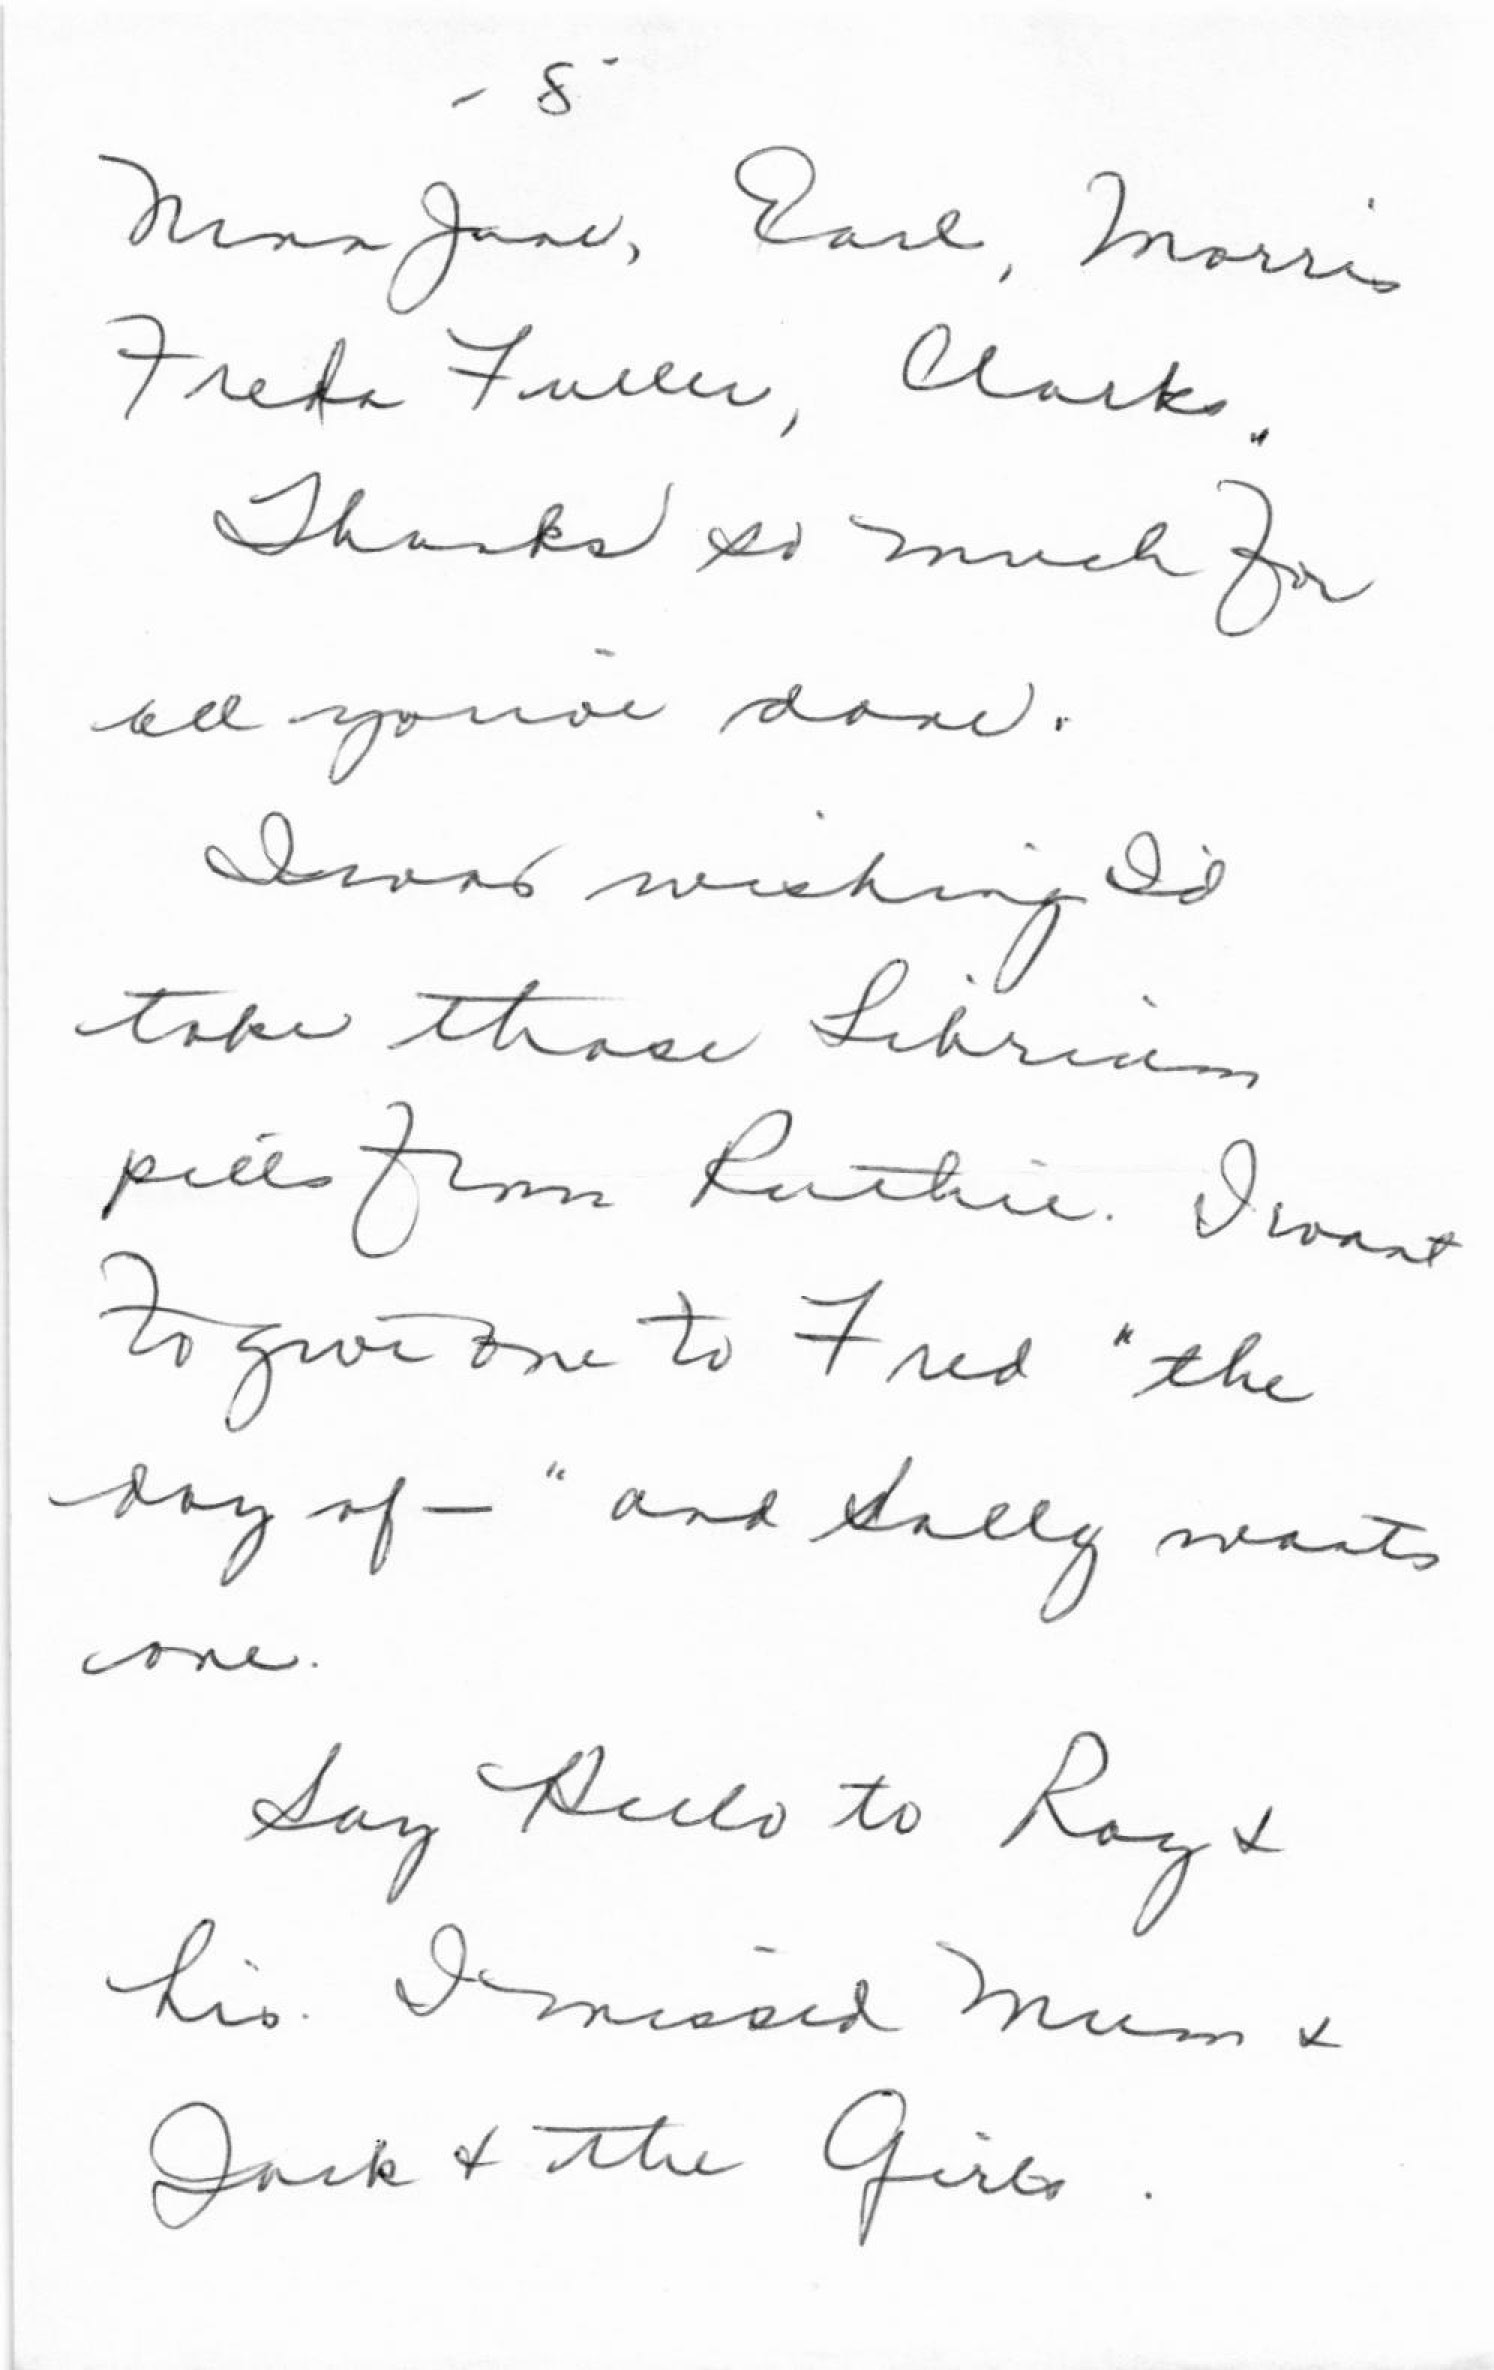 - 8 -
Nina Jane, Earl, Morris
Freda Fuller, Clarks.
Thanks so much for
all you've done.
I was wishing I'd
take those Librium
pills from Ruthie. I want
to give one to Fred "the
day of — " and Sally wants
one.
Say Hello to Ray &
his. I missed Mum &
Jack & the Girls.